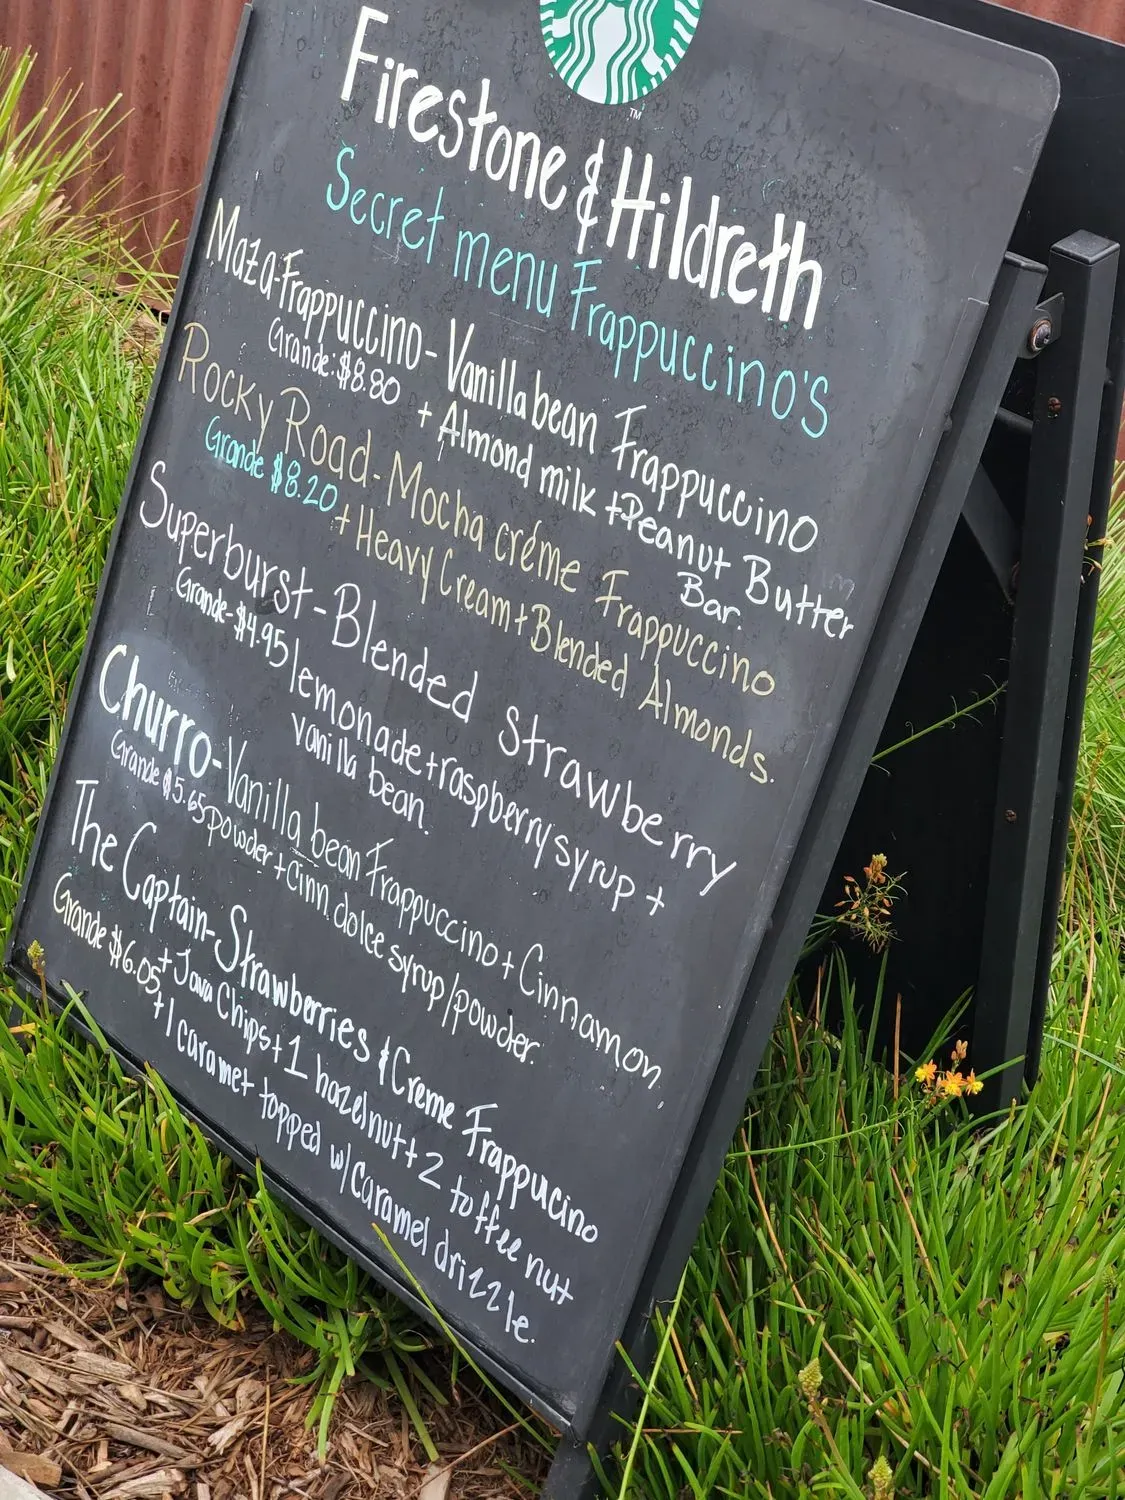 TM
Firestone & Hildreth
Secret menu Frappuccino's
Maza-Frappuccino- Vanilla bean Frappuccino
Grande: $8.80 + Almond milk + Peanut Butter
Bar.
Rocky Road- Mocha créme Frappuccino
Grande $8.20 + Heavy Cream + Blended Almonds.
Superburst- Blended Strawberry
Grande- $4.95 lemonade + raspberry syrup +
vanilla bean.
Churro- Vanilla bean Frappuccino + Cinnamon
Grande $5.65 powder + Cinn. dolce syrup/powder.
The Captain- Strawberries & Creme Frappucino
Grande $6.05 + Java Chips + 1 hazelnut + 2 toffee nut
+ 1 caramel topped w/ caramel drizzle.